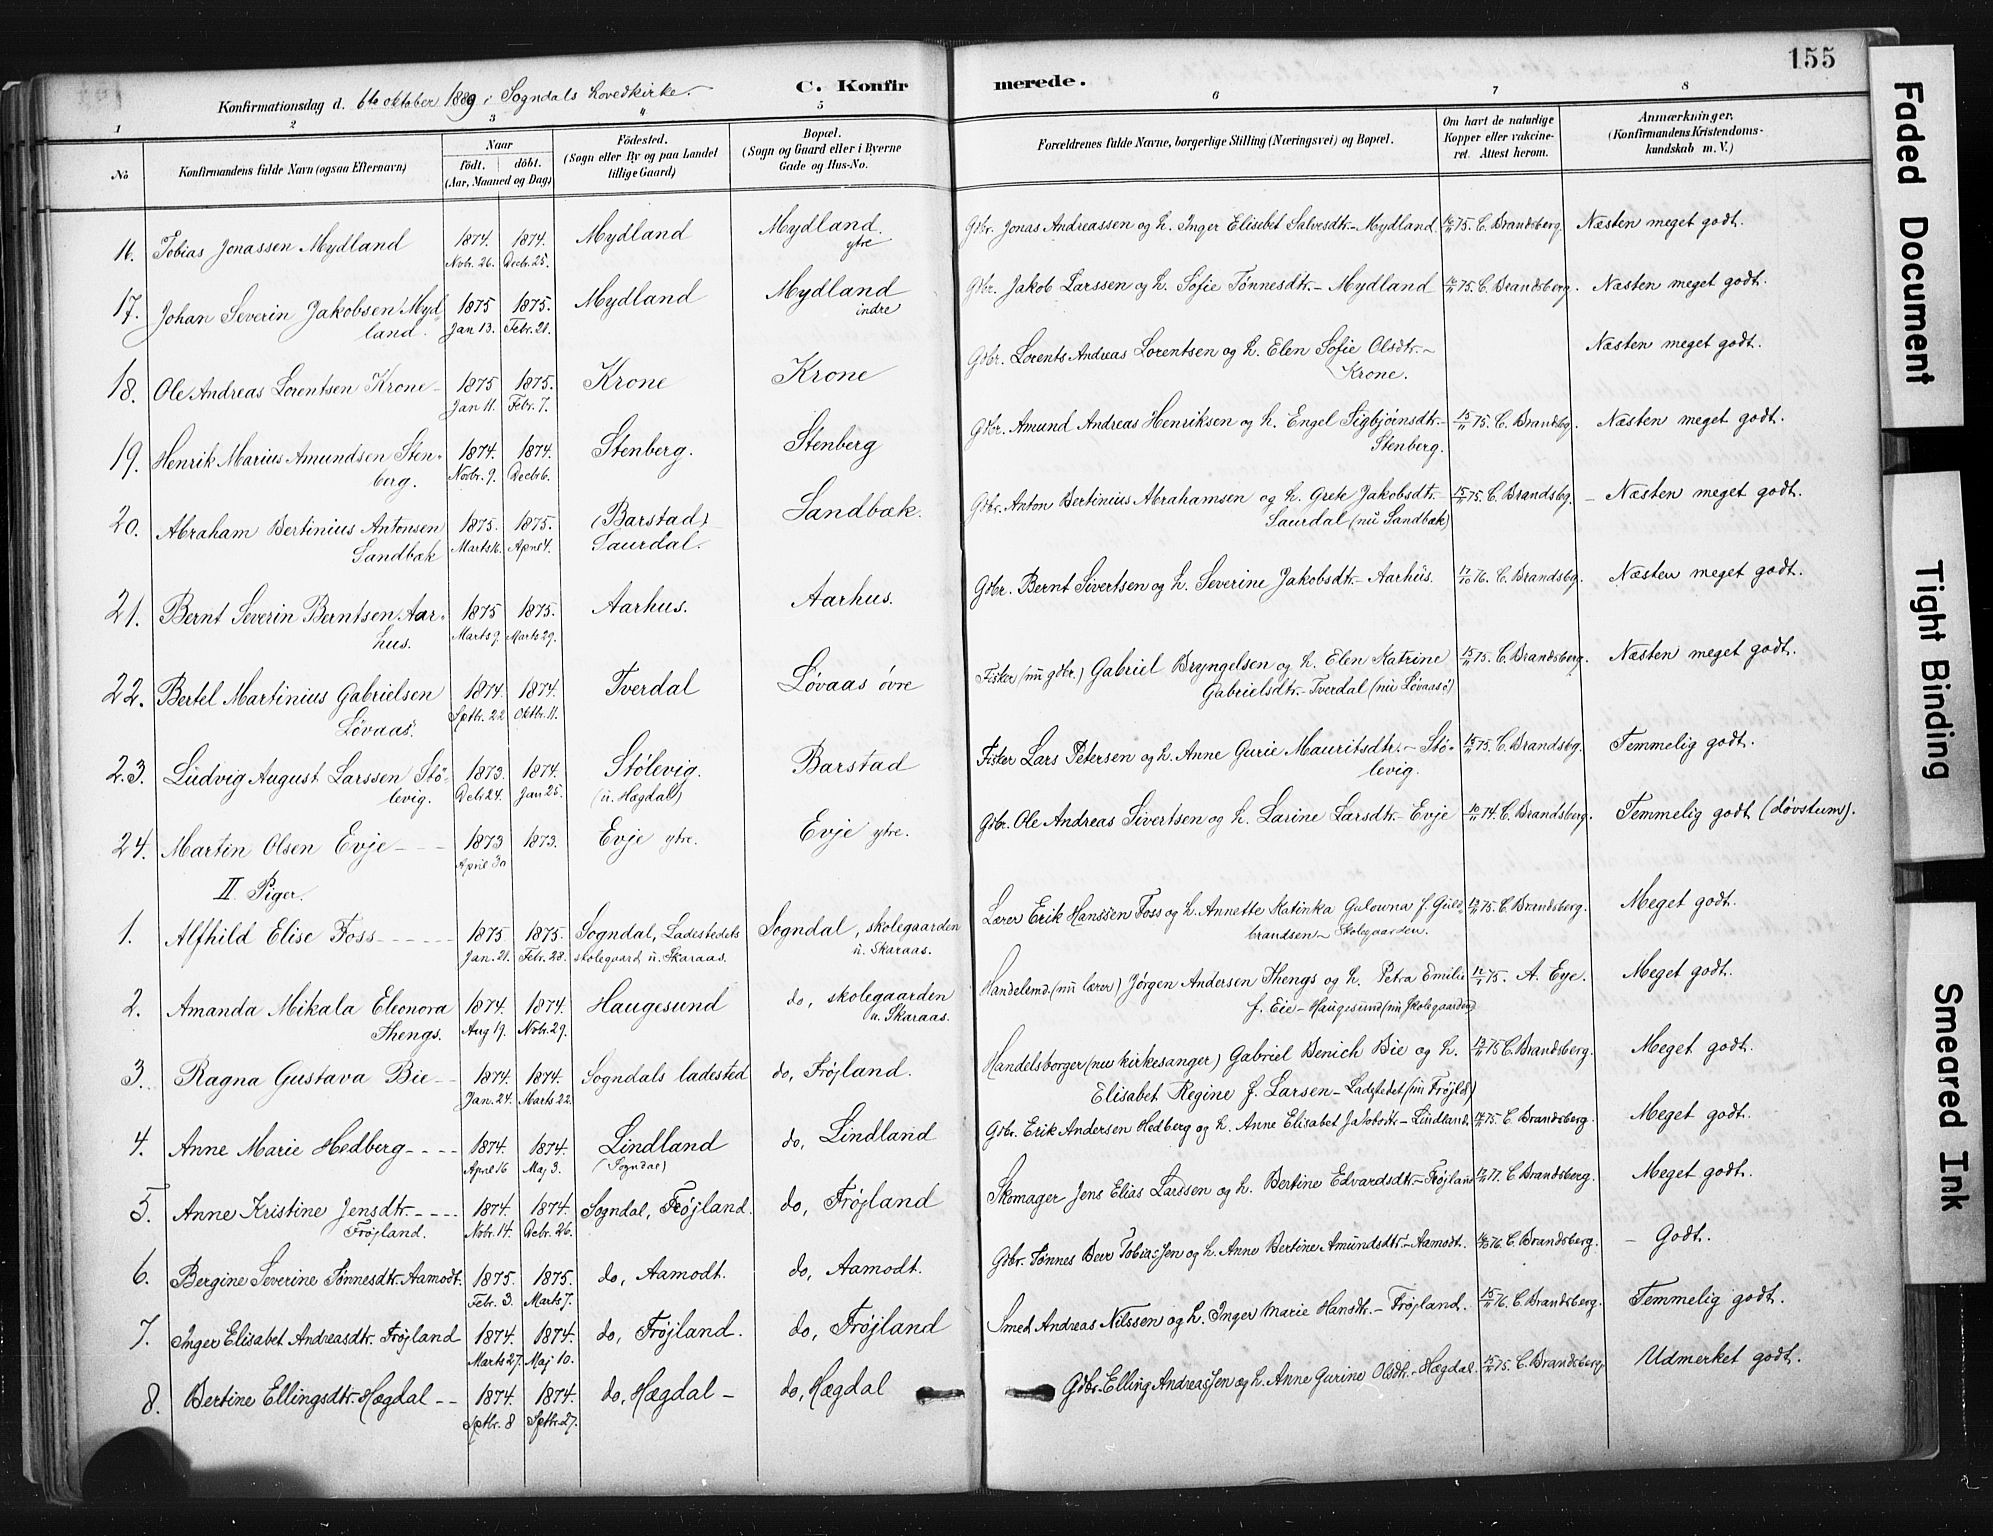 155
Konfirmationsdag d. 6te oktober 1889 i Sogndals hovedkirke.
C. Konfirmerede.
1 2 3 4 5 6 7 8
No
Konfirmandens fulde Navn (ogsaa Efternavn)
Naar
født. døbt.
(Aar, Maaned og Dag)
Fødested.
(Sogn eller By og paa Landet
tillige Gaard)
Bopæl.
(Sogn og Gaard eller i Byerne
Gade og Hus-No.
Forældrenes fulde Navne, borgerlige Stilling (Næringsvei) og Bopæl.
Om havt de naturlige
Kopper eller vakcine-
ret. Attest herom.
Anmærkninger.
(Konfirmandens Kristendoms-
kundskab m. V.)
16. Tobias Jonassen Mydland 1874. Novbr. 26. 1874. Decbr. 25. Mydland Mydland ytre Gdbr. Jonas Andreassen og h. Inger Elisebet Salvesdtr. - Mydland 75. C. Brandsberg. Næsten meget godt.
17. Johan Severin Jakobsen Myd-
land. 1875 Jan 13. 1875. Febr. 21. Mydland Mydland indre Gdbr. Jakob Larssen og h. Sofie Tønnesdtr. - Mydland 75. C. Brandsberg. Næsten meget godt.
18. Ole Andreas Lorentsen Krone 1875 Jan 11. 1875. Febr. 7. Krone Krone Gdbr. Lorents Andreas Lorentsen og h. Elen Sofie Olsdtr. -
Krone. Næsten meget godt.
19. Henrik Marius Amundsen Sten-
berg. 1874. Novbr. 9. 1874. Decbr 6. Stenberg. Stenberg Gdbr. Amund Andreas Henriksen og h. Engel Sigbjørnsdtr. -
Stenberg. 15/11 75. C. Brandsbg. Næsten meget godt.
20. Abraham Bertinius Antonsen
Sandbæk 1875. Marts 16. 1875. April 4. (Barstad)
Saurdal. Sandbæk. Gdbr. Anton Bertinius Abrahamsen og h. Grete Jakobsdtr. -
Saurdal (nu Sandbæk) 15/11 75. C. Brandsbg. Næsten meget godt.
21. Bernt Severin Berntsen Aar-
hus. 1875 Marts 9. 1875. Marts 29. Aarhus. Aarhus. Gdbr. Bernt Sivertsen og h. Severine Jakobsdtr. - Aarhus. 76. C. Brandsbg. Næsten meget godt.
22. Bertel Martinius Gabrielsen
Løvaas. 1874. Septbr. 22 1874. Oktbr. 11. Tverdal Løvaas øvre Fisker (nu gdbr.) Gabriel Bryngelsen og h. Elen Katrine
Gabrielsdtr. - Tverdal (nu Løvaas ø) 15/11 75. C. Brandsberg. Næsten meget godt.
23. Ludvig August Larssen Stø-
levig. 1873. Decbr 24. 1874. Jan 25. Stølevig.
(u. Hægdal) Barstad Fisker Lars Petersen og h. Anne Gurie Mauritsdtr. - Stø-
levig. 15/11 75. C. Brandsbg. Temmelig godt.
24. Martin Olsen Evje 1873 April 30 1873. Evje ytre. Evje ytre. Gdbr. Ole Andreas Sivertsen og h. Larine Larsdtr. - Evje 74. C. Brandsberg. Temmelig godt (døvstum).
II. Piger.
1. Alfhild Elise Foss 1875 Jan. 21. 1875. Febr. 28. Sogndal, Ladestedets
skolegaard u. Skaraas. Sogndal, skolegaarden
u. Skaraas. Lærer Erik Hanssen Foss og h. Annette Katinka Gulowna f. Guld-
brandsen - Skolegaarden. 75. C. Brandsberg. Meget godt.
2. Amanda Mikala Eleonora
Thengs. 1874. Aug 19. 1874. Nobr. 29. Haugesund do, skolegaarden
u. Skaraas. Handelsmd. (nu lærer) Jørgen Andersen Thengs og h. Petra Emilie
f. Eie - Haugesund (nu Skolegaarden) 75. A. Eye. Meget godt.
3. Ragna Gustava Bie 1874. Jan. 24. 1874. Marts 22. Sogndals ladested do, Frøjland. Handelsborger (nu kirkesanger) Gabriel Benich Bie og h.
Elisabet Regine f. Larsen - Ladestedet (nu Frøjld) 75 C. Brandsberg. Meget godt.
4. Anne Marie Hedberg 1874. April 16 1874. Maj 3. Lindland
(Sogndal) do, Lindland Gdbr. Erik Andersen Hedberg og h. Anne Elisabet Jakobsdtr. - Lindland. 75. C. Brandsberg. Meget godt.
5. Anne Kristine Jensdtr.
Frøjland. 1874. Nobr. 14. 1874. Decbr. 26. Sogndal, Frøjland. do, Frøjland Skomager Jens Elias Larssen og h. Bertine Edvardsdtr. - Frøjland 77. C. Brandsberg. Meget godt.
6. Bergine Severine Tønnesdtr. Aamodt. 1875. Febr. 3. 1875. Marts 7. do, Aamodt. do, Aamodt. Gdbr. Tønnes Beer Tobiassen og h. Anne Bertine Amundsdtr. - Aamodt. 76. C. Brandsberg. - Godt.
7. Inger Elisabet Andreasdtr. Frøjland 1874. Marts 27. 1874. Maj 10. do, Frøjland. do, Frøjland Smed Andreas Nilssen og h. Inger Marie Hansdtr. - Frøjland. 76. C. Brandsberg. Temmelig godt.
8. Bertine Ellingsdtr. Hægdal 1874. Septbr. 8 1874. Septbr. 27. do, Hægdal - do, Hægdal Gdbr. Elling Andreassen og h. Anne Gurine Olsdtr. - Hægdal. 75. C. Brandsberg. Udmerket godt.
Faded Document
Tight Binding
Smeared Ink